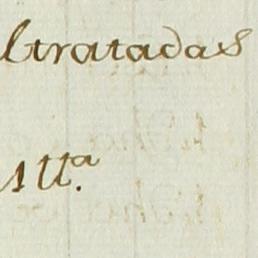 ltratadas
Mtt.ª